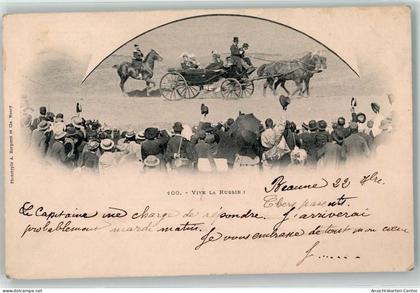 Phototypie A. Bergeret et Cie Nancy
100. - VIVE LA RUSSIE !
Beaune 22 7bre.
Chers parents.
Le Capitaine me charge de répondre. J'arriverai
probablement mardi matin. Je vous embrasse de tout mon cœur
J......
www.ansichtskarten-center.de
Ansichtskarten-Center